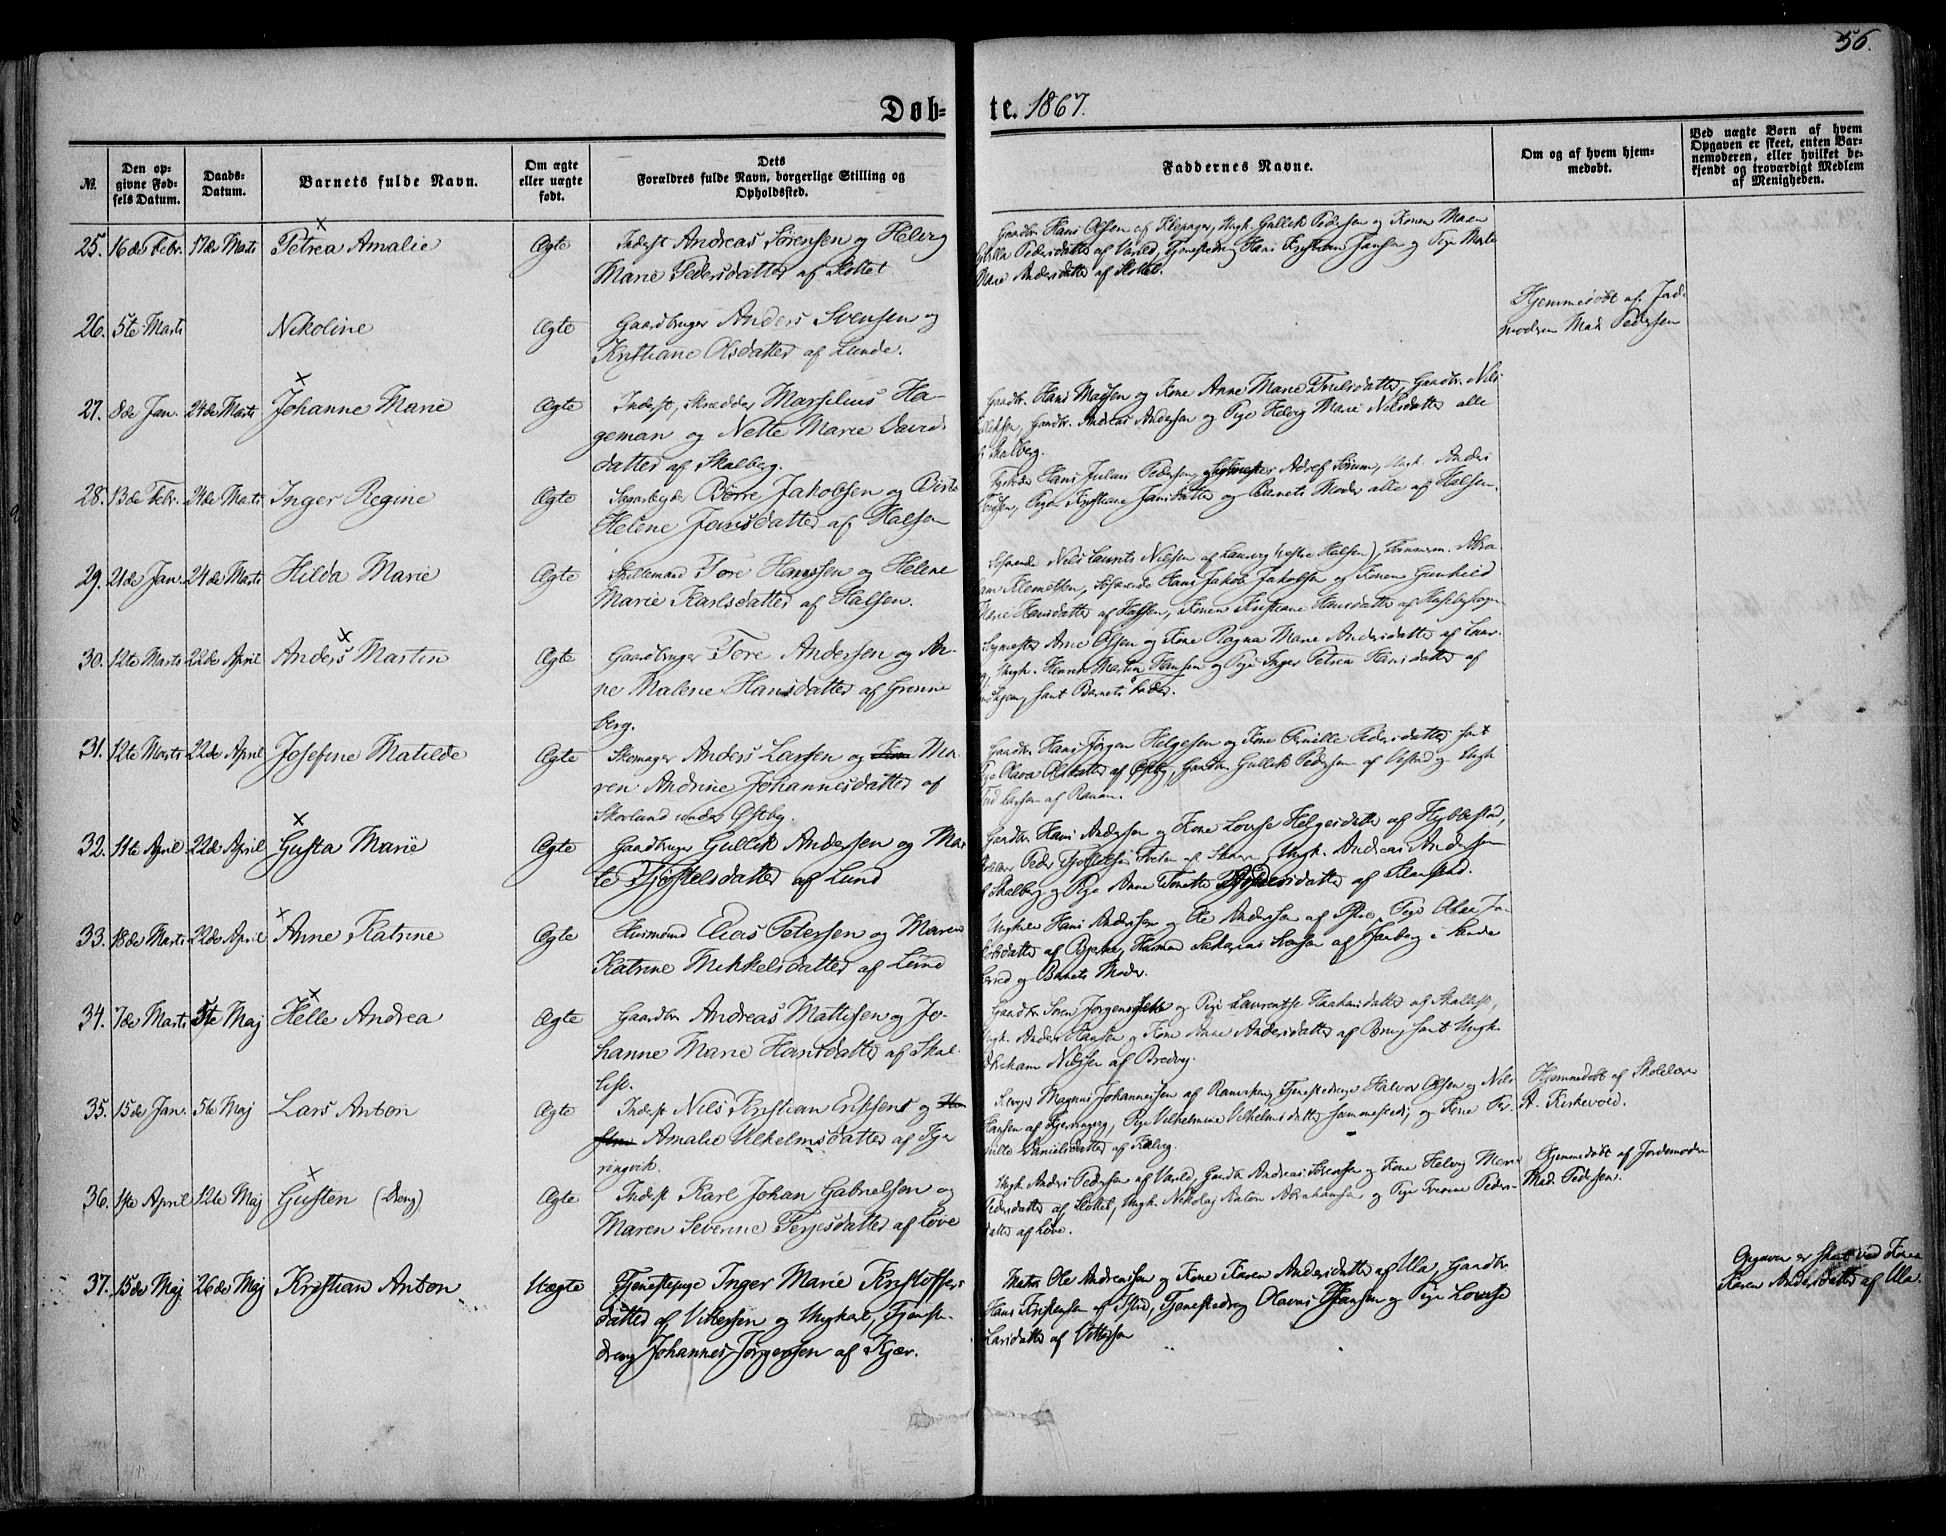 56.
Døb= te. 1867.
№.
Den op=
givne Fød=
sels Datum.
Daabs=
Datum.
Barnets fulde Navn.
Om ægte
eller uægte
født.
Dets
Forældres fulde Navn, borgerlige Stilling og
Opholdssted.
Faddernes Navne.
Om og af hvem hjem=
medøbt.
Ved uægte Børn af hvem
Opgaven er skeet, enten Bar=
nemoderen, eller hvilket be=
kjendt og troværdigt Medlem
af Menigheden.
25. 16de Febr. 17de Marts Petrea Amalie Ægte Inderst Andreas Sørensen og Helvig
Marie Pedersdatter af Slottet
Gaardbr. Hans Olsen af Klepager, Ungk. Gullik Pedersen og Konen Maren
Pedersdatter af Varild, Tjenestedreng Hans Kristian Hansen og Pige Marte
Marie Andersdatter af Slottet.
26. 5te Marts Nikoline Ægte Gaardbruger Anders Svensen og
Kristiane Olsdatter af Lunde.
Hjemmedøbt af Jord-
moderen Mad. Pedersen
27. 8de Jan. 24de Marts Johanne Marie Ægte Inderst, Skrædder Marselius Ha-
geman og Nette Marie Davids
datter af Skalberg.
Gaardbr. Hans Madsen og Kone Anne Marie Truelsdatter, Gaardbr. Nils
Gulliksen, Gaardbr. Andreas Andersen og Pige Helvig Marie Nilsdatter alle
af Skalberg.
28. 13de Febr. 24de Marts Inger Regine Ægte Børre Jakobsen og Birte
Helene Jansdatter af Halsen
Hans Julius Pedersen, Adolf Sørum, Ungk. Anders
Pige Kristiane Jansdatter og Barnets Moder alle af Halsen.
29. 21de Jan. 24de Marts Hilda Marie Ægte Spillemand Tore Hanssen og Helene
Marie Karlsdatter af Halsen.
Nils Laurits Nilsen af Laurvig (vestre Halsen), Abra-
ham Klemetsen, Søfarende Hans Jakob Jakobsen og Konen Gunhild
Marie Hansdatter af Halsen, Konen Kristiane Hansdatter af
30. 12te Marts 22de April Anders Martin Ægte Gaardbruger Tore Andersen og An-
ne Malene Hansdatter af Grønne
berg.
Arne Olsen og Kone Ragna Marie Andersdatter af Laur-
vig, Ungk. Henrik Martin Hansen og Pige Inger Petrea Hansdatter af
samt Barnets Fader.
31. 12te Marts 22de April Josefine Matilde Ægte Skomager Anders Larsen og Ma-
ren Andrine Johannesdatter af
Skorland under Østby.
Gaardbr. Hans Jørgen Helgesen og Kone Pernille Pedersdatter samt
Pige Olava Olsdatter af Østby, Gaardbr. Gullik Pedersen af og Ungk.
Larsen af
32. 11te April 22de April Gusta Marie Ægte Gaardbruger Gullik Andersen og Mar
te Tjøstelsdatter af Lund
Gaardbr. Hans Andersen og Kone Lovise Helgesdatter af Hybbestad,
Peder Tjøstelsen af Skaara, Ungk. Andreas Andersen
af Skalberg og Pige Anne Tonette af Klaastad.
33. 18de Marts 22de April Anne Katrine Ægte Husmand Elias Petersen og Maren
Katrine Mikkelsdatter af Lund
Ungkarl Hans Andersen og Ole Andersen af Pige Olea Ja-
kobsdatter af Bjerke, Husmand Sakarias af i Sande
herred og Barnets Moder.
34. 7de Marts 5te Maj Helle Andrea Ægte Gaardbr Andreas Mattisen og Jo-
hanne Marie Hansdatter af Skal-
list.
Gaardbr Søren Jørgensen og Pige Laurentse Haakensdatter af Skallist,
Ungk. Anders Hansen og Kone Anne Andersdatter af Berg, samt Ungk.
Abraham Nilssen af Bredvej.
35. 15de Jan. 5te Maj Lars Anton Ægte Inderst Nils Kristian Eriksen og
Amalie Vilhelmsdatter af Tjø
ringvik.
Magnus Johannessen af Ranviken, Tjenestedrenge Halvor Olsen og Nils
Hansen af Pige Vilhelmine Vilhelmsdatter sammesteds, og Kone Per-
nille Danielsdatter af
Hjemmedøbt af Skolelærer
A. Kirkevold.
36. 1ste April 12te Maj Gusten (Dreng) Ægte Inderst Karl Johan Gabrielsen og
Maren Severine Terjesdatter af Løve
Ungk. Anders Pedersen af Varild, Gaardbr Andreas Sørensen og Kone Helvig Marie
Pedersdatter af Slottet, Ungk. Nikolaj Anton Abrahamsen og Pige Peders-
datter af Løve.
Hjemmedøbt af Jordemoder
Mad. Pedersen.
37. 15de Maj 26de Maj Kristian Anton Uægte Tjenestepige Inger Marie Kristoffers
datter af Vittersen og Ungkarl, Tjeneste-
dreng Johannes Jørgensen af Kjær.
Ole Andreassen og Kone Karen Andersdatter af Ula, Gaardbr.
Hans Kristensen af Tjenestedreng Olavus Hansen og Pige Lovise
Larsdatter af Vittersen
Opgaven er skeet ved Kone
Karen Andersdatter af Ula.